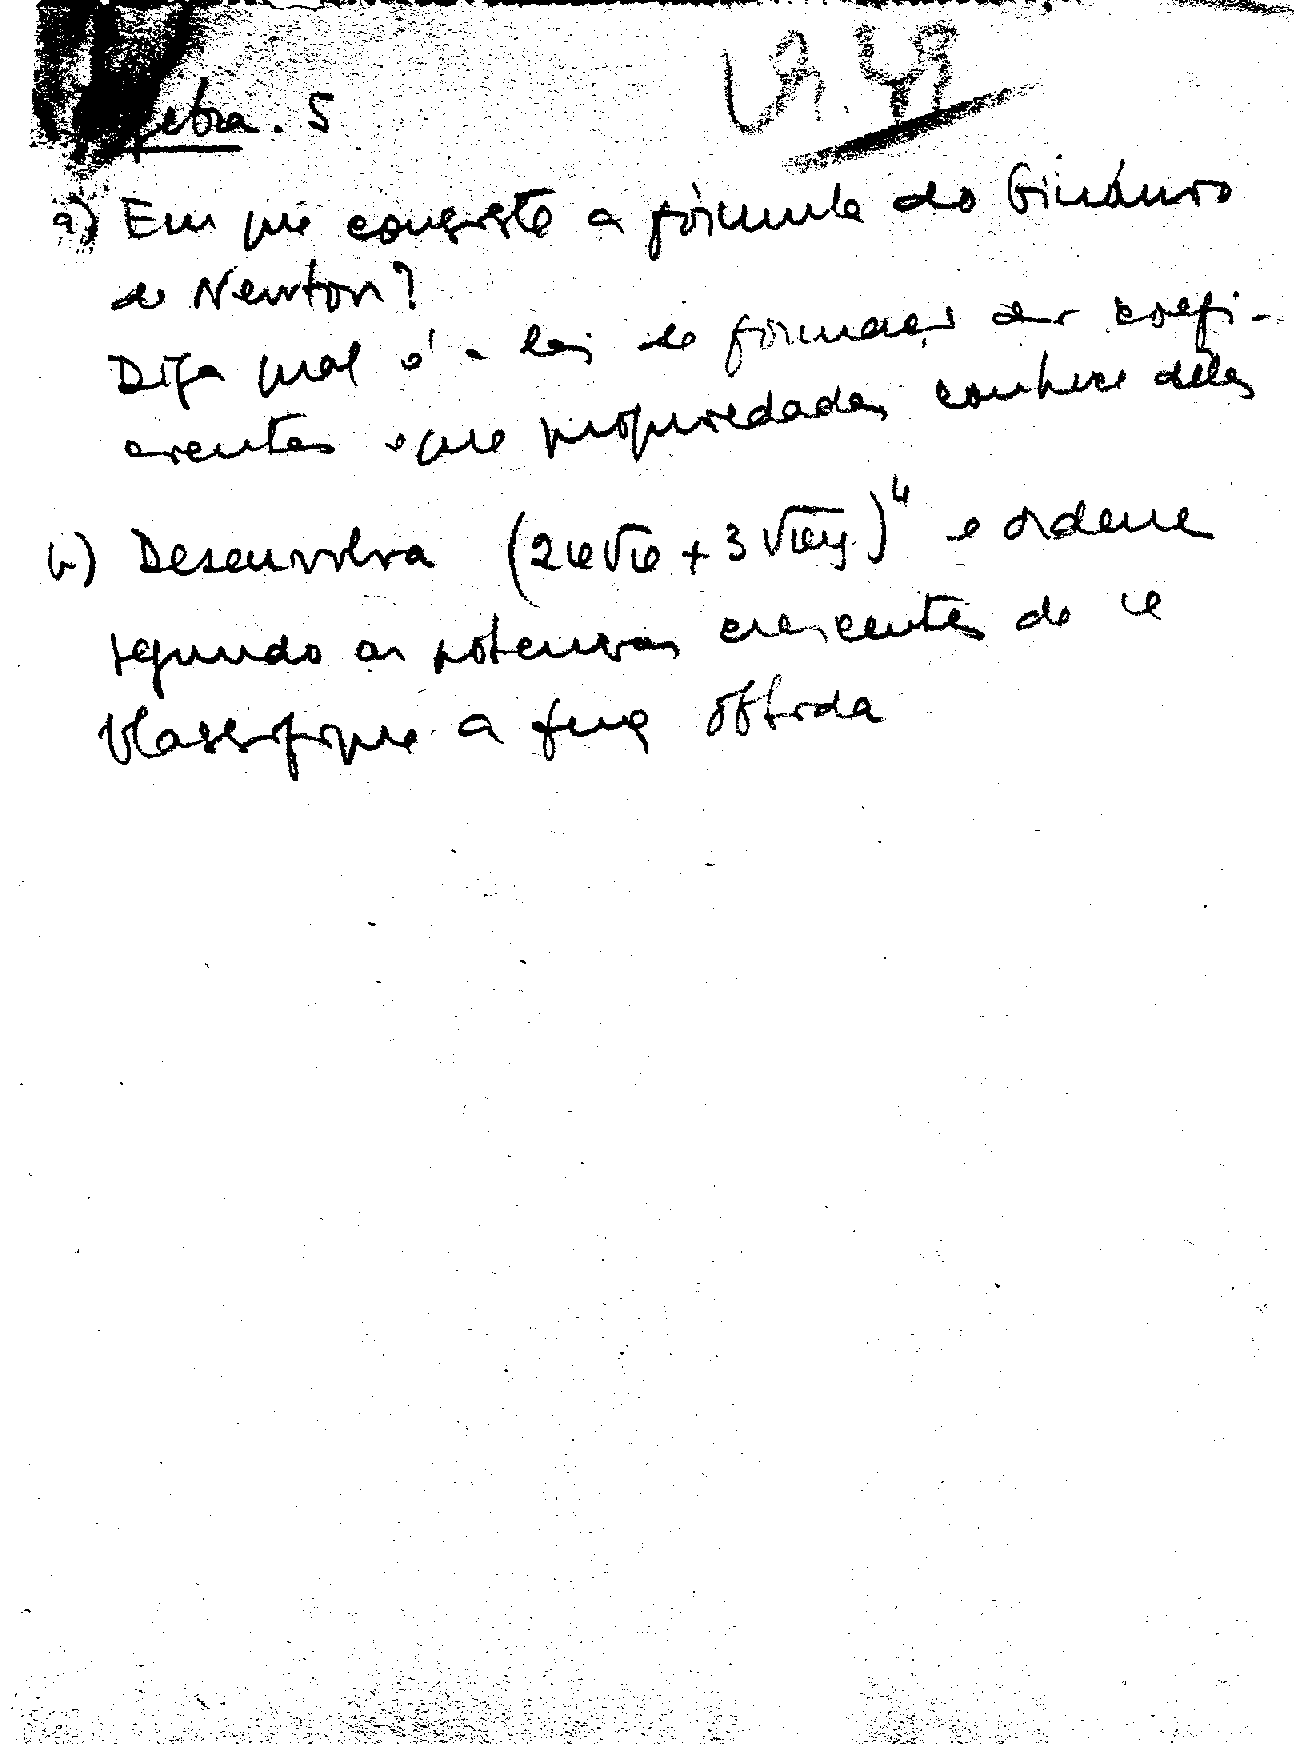 Algebra. 5
a) Em que consiste a fórmula do binómio
de Newton?
Diga qual é a lei de formação dos coefi-
cientes e que propriedades conhece deles
b) Desenvolva (2x√x + 3√xy)⁴ e ordene
segundo as potencias crescentes de x
Classifique a funç obtida